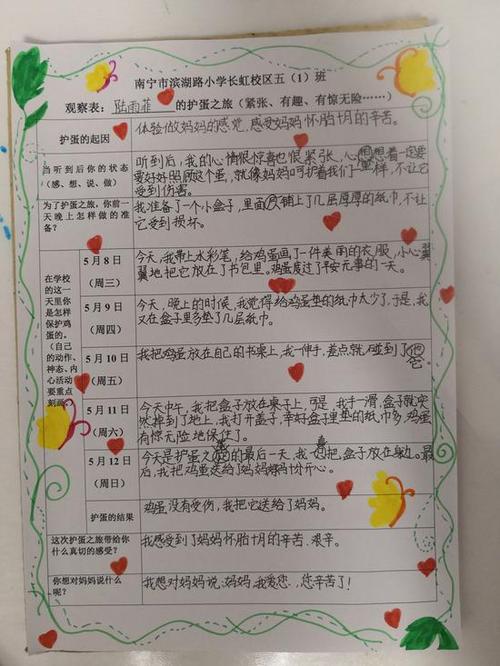 南宁市滨湖路小学长虹校区五（1）班
观察表：陆雨菲的护蛋之旅（紧张、有趣、有惊无险……）
护蛋的起因
体验做妈妈的感觉，感受妈妈怀胎十月的辛苦。
当听到后你的状态
（感、想、说、做）
听到后，我的心情很惊喜也很紧张，心想想着一定要
爱好好照顾这个蛋，就像妈妈呵护着我们一样，不让它
受到伤害。
为了护蛋之旅，你前一
天晚上是怎样做的准
备？
我准备了一个小盒子，里面铺上了几层厚厚的纸巾，不让
它受到损坏。
在学校
的这一
天里你
是怎样
保护鸡
蛋的。
（自己
的动作、
神态、内
心活动
要重点
刻画）
5月8日
（周三）
今天，我带上水彩笔，给鸡蛋画了一件美丽的衣服，小心翼
翼地把它放在了书包里。鸡蛋度过了平安无事的一天。
5月9日
（周四）
今天，晚上的时候，我觉得给鸡蛋垫的纸巾太少了，于是，我
又在盒子里多垫了几层纸巾。
5月10日
（周五）
我把鸡蛋放在自己的书桌上，我一伸手，差点就碰到了它
5月11日
（周六）
今天中午，我把盒子放在桌子上，可是，我手一滑，盒子就突
然掉到了地上，我打开盖子，幸好盒子里垫的纸巾多，鸡蛋
有惊无险地保住了。
5月12日
（周日）
今天是护蛋之旅的最后一天，我把盒子放在身边。最
后，我把鸡蛋送给了妈妈，妈妈十分开心。
护蛋的结果
鸡蛋没有受伤，我把它送给了妈妈。
这次护蛋之旅带给你
什么真切的感受？
我感受到了妈妈怀胎十月的辛苦、艰辛。
你想对妈妈说什么
呢？
我想对妈妈说，妈妈，我爱您，您辛苦了！